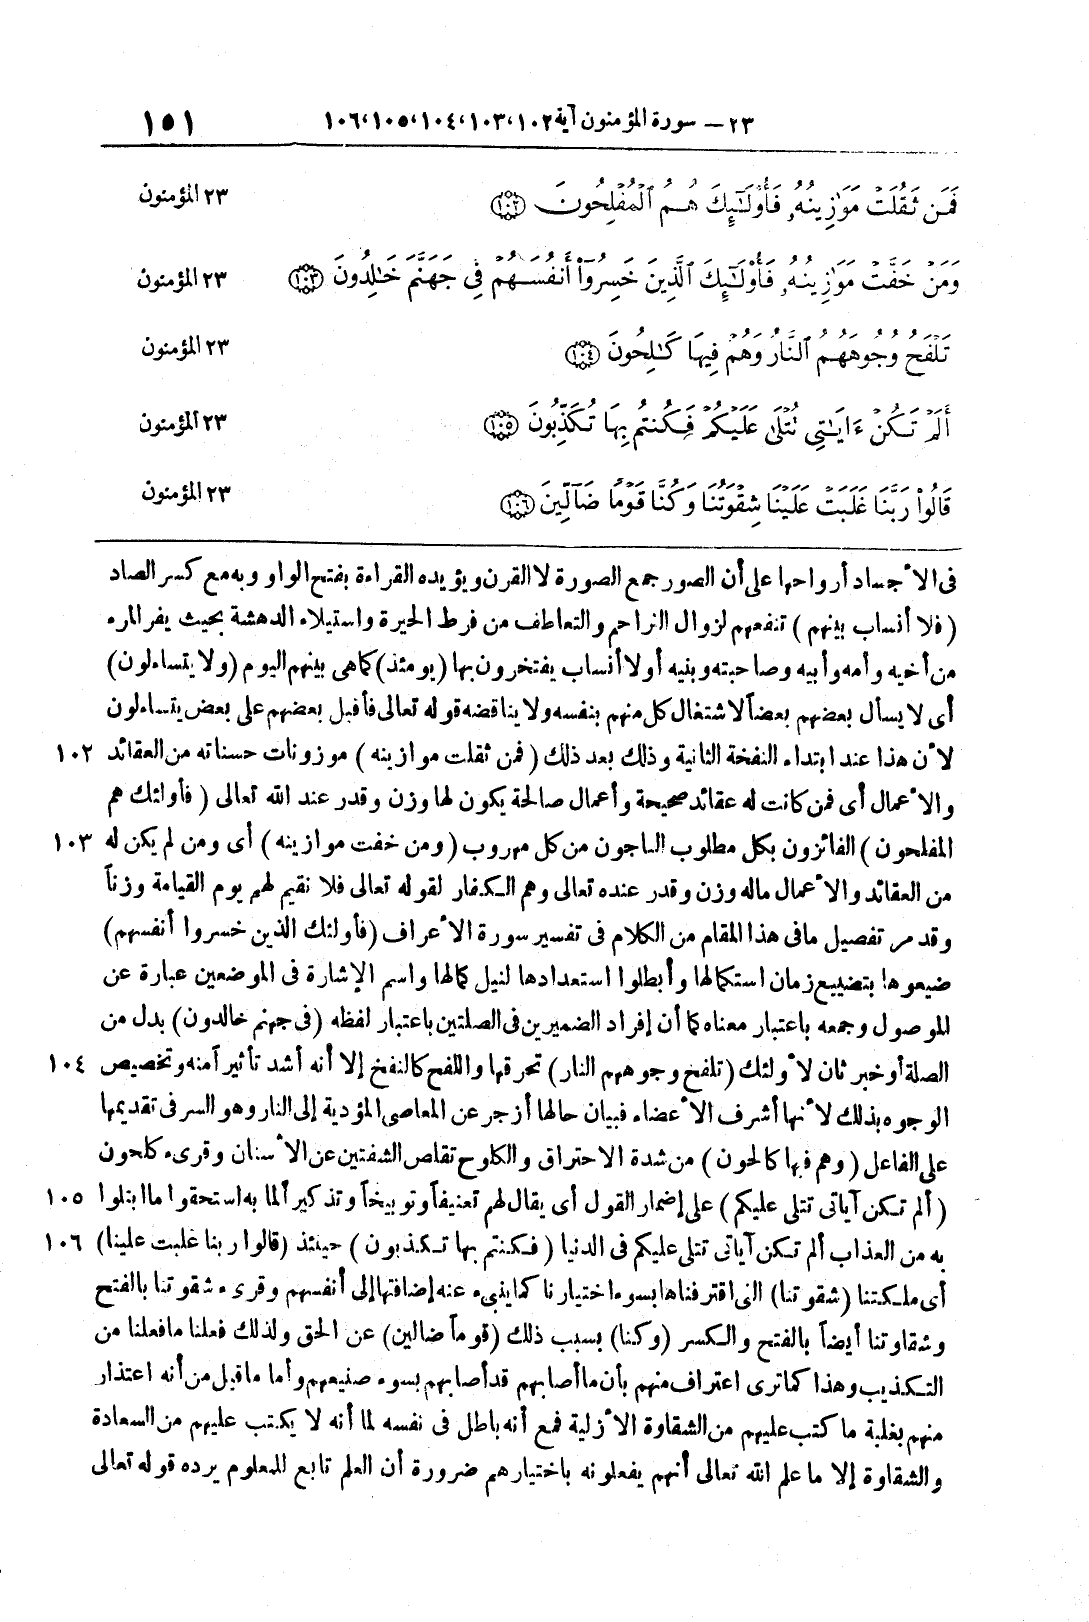 ٢٣ – سورة المؤمنون آية ١٠٢،١٠٣،١٠٤،١٠٥،١٠٦ ١٥١
فَمَن ثَقُلَتْ مَوَٰزِينُهُۥ فَأُوْلَٰٓئِكَ هُمُ ٱلْمُفْلِحُونَ ١٠٢ ٢٣ المؤمنون
وَمَنْ خَفَّتْ مَوَٰزِينُهُۥ فَأُوْلَٰٓئِكَ ٱلَّذِينَ خَسِرُوٓاْ أَنفُسَهُمْ فِى جَهَنَّمَ خَٰلِدُونَ ١٠٣ ٢٣ المؤمنون
تَلْفَحُ وُجُوهَهُمُ ٱلنَّارُ وَهُمْ فِيهَا كَٰلِحُونَ ١٠٤ ٢٣ المؤمنون
أَلَمْ تَكُنْ ءَايَٰتِى تُتْلَىٰ عَلَيْكُمْ فَكُنتُم بِهَا تُكَذِّبُونَ ١٠٥ ٢٣ المؤمنون
قَالُواْ رَبَّنَا غَلَبَتْ عَلَيْنَا شِقْوَتُنَا وَكُنَّا قَوْمًا ضَآلِّينَ ١٠٦ ٢٣ المؤمنون
فى الأجساد أرواحها على أن الصور جمع الصورة لا القرن ويؤيده القراءة بفتح الواو وبه مع كسر الصاد
(فلا أنساب بينهم) تنفعهم لزوال التراحم والتعاطف من فرط الحيرة واستيلاء الدهشة بحيث يفر المرء
من أخيه وأمه وأبيه وصاحبته وبنيه أو لا أنساب يفتخرون بها (يومئذ) كما هى بينهم اليوم (ولا يتساءلون)
أى لا يسأل بعضهم بعضاً لاشتغال كل منهم بنفسه ولا يناقضه قوله تعالى فأقبل بعضهم على بعض يتساءلون
لأن هذا عند ابتداء النفخة الثانية وذلك بعد ذلك (فمن ثقلت موازينه) موزونات حسناته من العقائد ١٠٢
والأعمال أى فمن كانت له عقائد صحيحة وأعمال صالحة يكون لها وزن وقدر عند الله تعالى (فأولئك هم
المفلحون) الفائزون بكل مطلوب الناجون من كل مهروب (ومن خفت موازينه) أى ومن لم يكن له ١٠٣
من العقائد والأعمال ماله وزن وقدر عنده تعالى وهم الكفار لقوله تعالى فلا نقيم لهم يوم القيامة وزناً
وقد مر تفصيل ما فى هذا المقام من الكلام فى تفسير سورة الأعراف (فأولئك الذين خسروا أنفسهم)
ضيعوها بتضييع زمان استكمالها وأبطلوا استعدادها لنيل كمالها واسم الإشارة فى الموضعين عبارة عن
الموصول وجمعه باعتبار معناه كما أن إفراد الضميرين فى الصلتين باعتبار لفظه (فى جهنم خالدون) بدل من
الصلة أو خبر ثان لأولئك (تلفح وجوههم النار) تحرقها واللفح كالنفخ إلا أنه أشد تأثيراً منه وتخصيص ١٠٤
الوجوه بذلك لأنها أشرف الأعضاء فبيان حالها أزجر عن المعاصى المؤدية إلى النار وهو السر فى تقديمها
على الفاعل (وهم فيها كالحون) من شدة الاحتراق والكلوح تقلص الشفتين عن الأسنان وقرىء كلحون
(ألم تكن آياتى تتلى عليكم) على إضمار القول أى يقال لهم تعنيفاً وتوبيخاً وتذكيراً لما به استحقوا ما ابتلوا ١٠٥
به من العذاب ألم تكن آياتى تتلى عليكم فى الدنيا (فكنتم بها تكذبون) حينئذ (قالوا ربنا غلبت علينا) ١٠٦
أى ملكتنا (شقوتنا) التى اقترفناها بسوء اختيارنا كما ينبىء عنه إضافتها إلى أنفسهم وقرىء شقوتنا بالفتح
وشقاوتنا أيضاً بالفتح والكسر (وكنا) بسبب ذلك (قوماً ضالين) عن الحق ولذلك فعلنا ما فعلنا من
التكذيب وهذا كما ترى اعتراف منهم بأن ما أصابهم قد أصابهم بسوء صنيعهم وأما ما قيل من أنه اعتذار
منهم بغلبة ما كتب عليهم من الشقاوة الأزلية فمع أنه باطل فى نفسه لما أنه لا يكتب عليهم من السعادة
والشقاوة إلا ما علم الله تعالى أنهم يفعلونه باختيارهم ضرورة أن العلم تابع للمعلوم يرده قوله تعالى